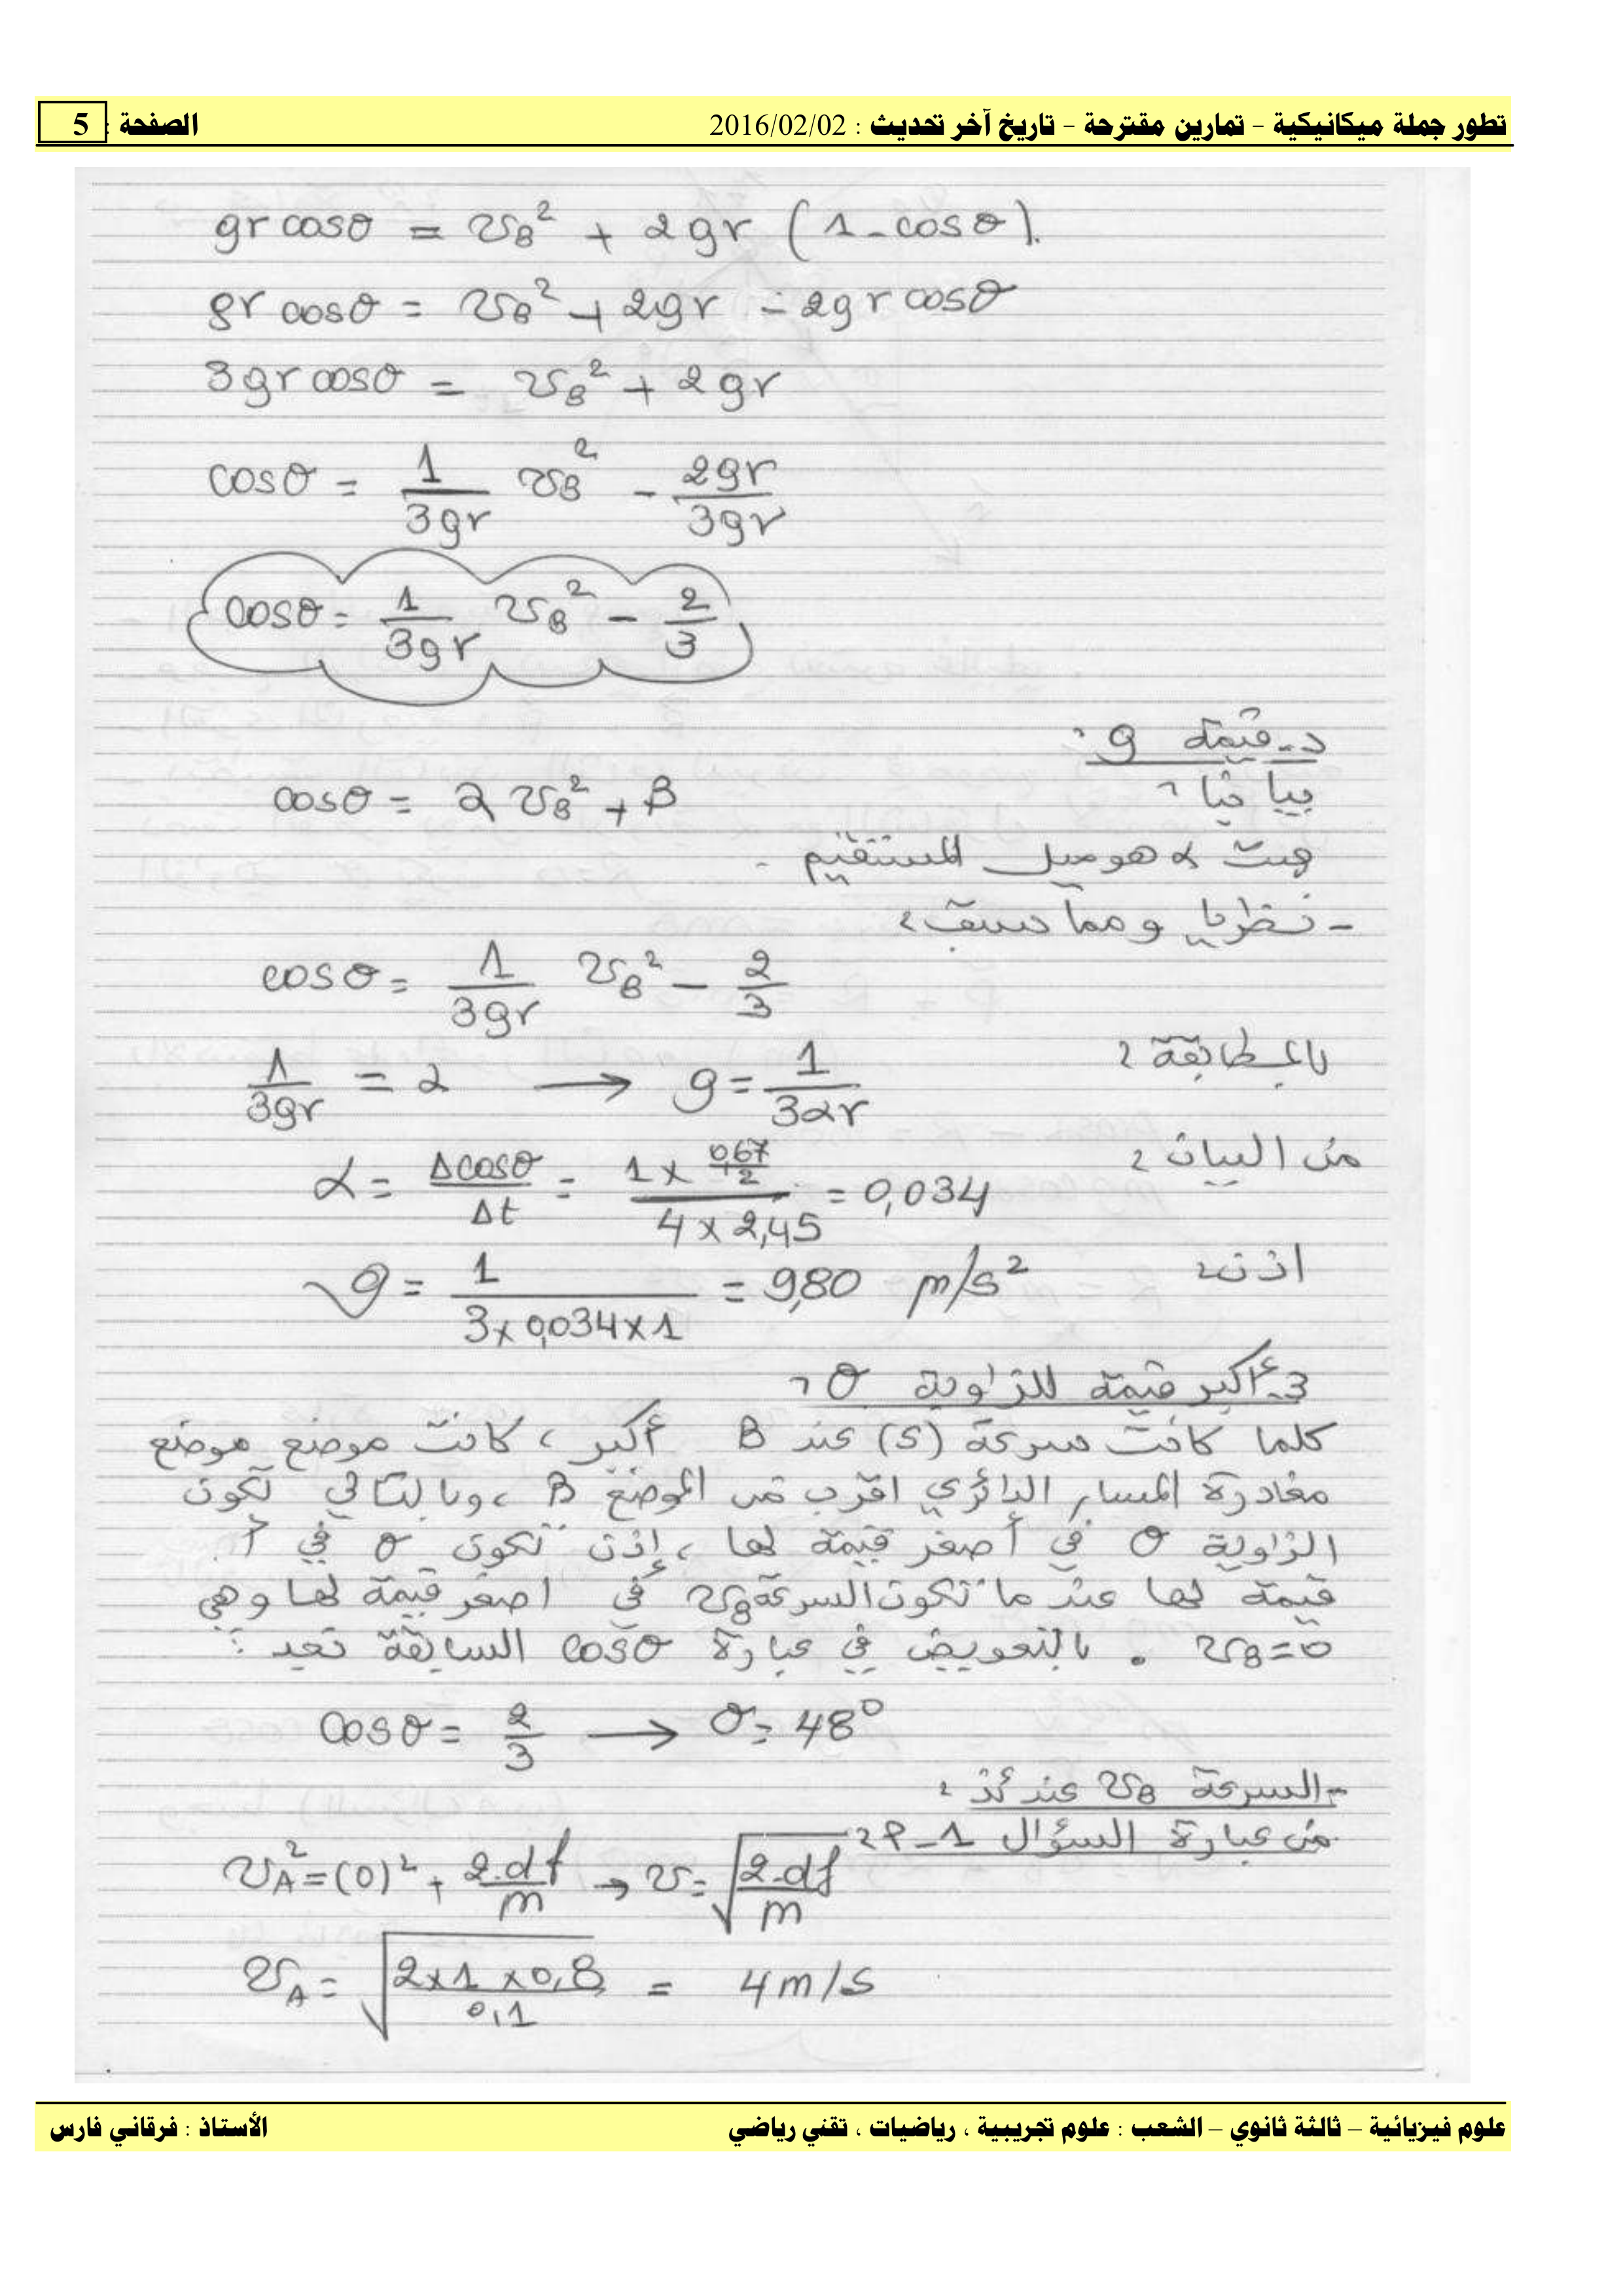 تطور جملة ميكانيكية – تمارين مقترحة – تاريخ آخر تحديث : 2016/02/02 الصفحة : 5
gr cosθ = v_B² + 2gr (1 - cosθ).
gr cosθ = v_B² + 2gr - 2gr cosθ
3gr cosθ = v_B² + 2gr
cosθ = 1/3gr v_B² - 2gr/3gr
cosθ = 1/3gr v_B² - 2/3
د- قيمة g :
بيانيا :
cosθ = α v_B² + β
حيث α هو ميل المستقيم .
- نظريا ومما سبق :
cosθ = 1/3gr v_B² - 2/3
بالمطابقة :
1/3gr = α → g = 1/3αr
من البيان :
α = Δcosθ/Δt = (1 × 0,67/2)/(4 × 2,45) = 0,034
اذن :
g = 1/(3×0,034×1) = 9,80 m/s²
3- أكبر قيمة للزاوية θ :
كلما كانت سرعة (S) عند B أكبر ، كانت موضع موضع
مغادرة المسار الدائري اقرب من الموضع B ، وبالتالي تكون
الزاوية θ في أصغر قيمة لها ، إذن تكون θ في أ
قيمة لها عند ما تكون السرعة v_B في اصغر قيمة لها وهي
v_B = 0 . بالتعويض في عبارة cosθ السابقة نجد :
cosθ = 2/3 → θ = 48°
- السرعة v_B عندئذ :
من عبارة السؤال 1-أ :
v_A² = (0)² + 2.d f/m → v = √(2.df/m)
v_A = √(2×1×0,8/0,1) = 4 m/s
علوم فيزيائية – ثالثة ثانوي – الشعب : علوم تجريبية ، رياضيات ، تقني رياضي الأستاذ : فرقاني فارس